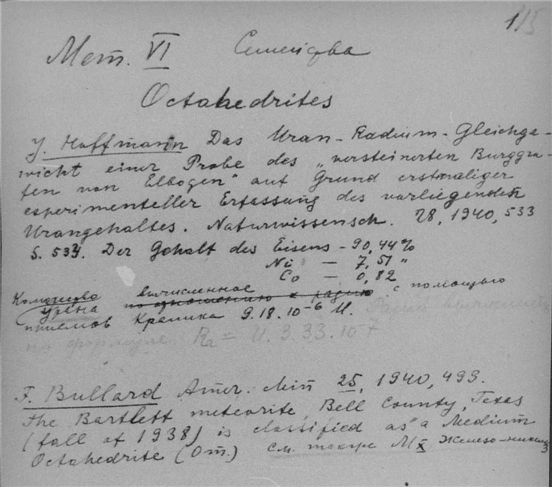 1/5
Мет. VI Семейства
Octahedrites
J. Hoffmann Das Uran-Radium-Gleichge-
wicht einer Probe des „versteinerten Burggra-
fen von Elbogen" auf Grund erstmaliger
experimenteller Erfassung des vorliegenden
Urangehaltes. Naturwissensch. 28, 1940, 533
S. 534. Der Gehalt des Eisens - 90,44%
Ni - 7,51 "
Co - 0,82
Количество вычисленное по отношению к радию с помощью
Урана
приемов Кремика 9.18.10-6 U. Радий
по формуле Ra = U. 3.33.10-7
F. Bullard Amer. Min 25, 1940, 493.
The Bartlett meteorite, Bell County, Texas
(fall of 1938) is classified as a Medium
Octahedrite (Om.) См. также М Железо-никел